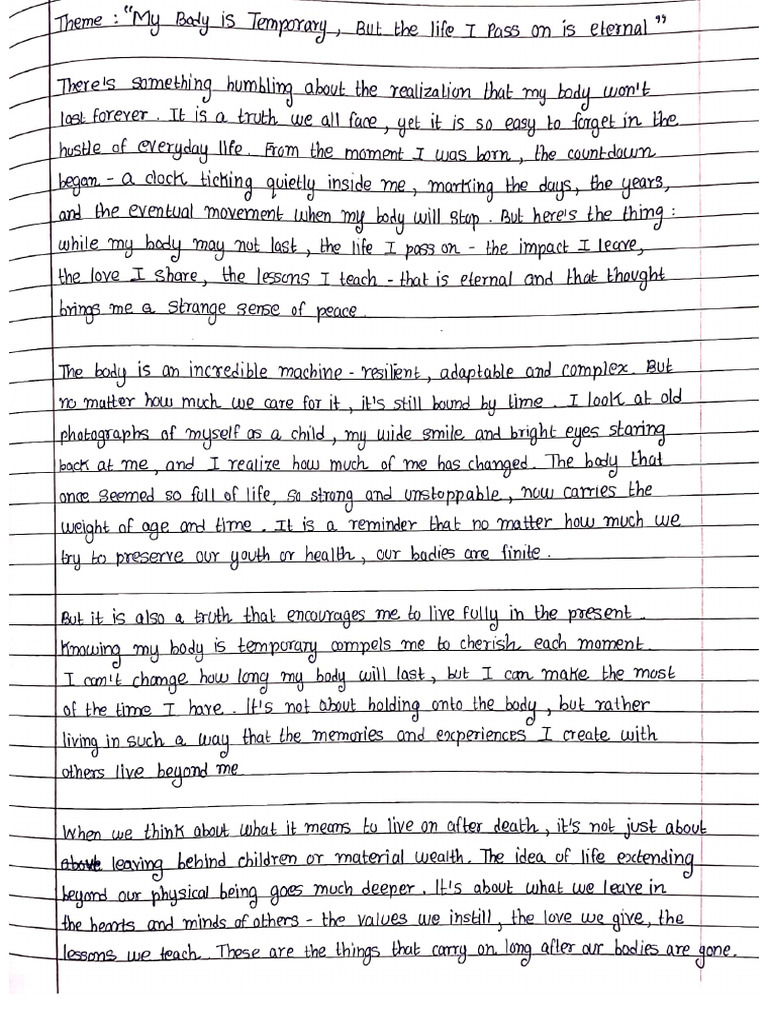 Theme : "My Body is Temporary, But the life I Pass on is eternal"
There's something humbling about the realization that my body won't
last forever. It is a truth we all face, yet it is so easy to forget in the
hustle of everyday life. From the moment I was born, the countdown
began - a clock ticking quietly inside me, marking the days, the years,
and the eventual movement when my body will stop. But here's the thing:
while my body may not last, the life I pass on - the impact I leave,
the love I share, the lessons I teach - that is eternal and that thought
brings me a strange sense of peace.
The body is an incredible machine - resilient, adaptable and complex. But
no matter how much we care for it, it's still bound by time. I look at old
photographs of myself as a child, my wide smile and bright eyes staring
back at me, and I realize how much of me has changed. The body that
once seemed so full of life, so strong and unstoppable, now carries the
weight of age and time. It is a reminder that no matter how much we
try to preserve our youth or health, our bodies are finite.
But it is also a truth that encourages me to live fully in the present.
Knowing my body is temporary compels me to cherish each moment.
I can't change how long my body will last, but I can make the most
of the time I have. It's not about holding onto the body, but rather
living in such a way that the memories and experiences I create with
others live beyond me
When we think about what it means to live on after death, it's not just about
leaving behind children or material wealth. The idea of life extending
beyond our physical being goes much deeper. It's about what we leave in
the hearts and minds of others - the values we instill, the love we give, the
lessons we teach. These are the things that carry on long after our bodies are gone.